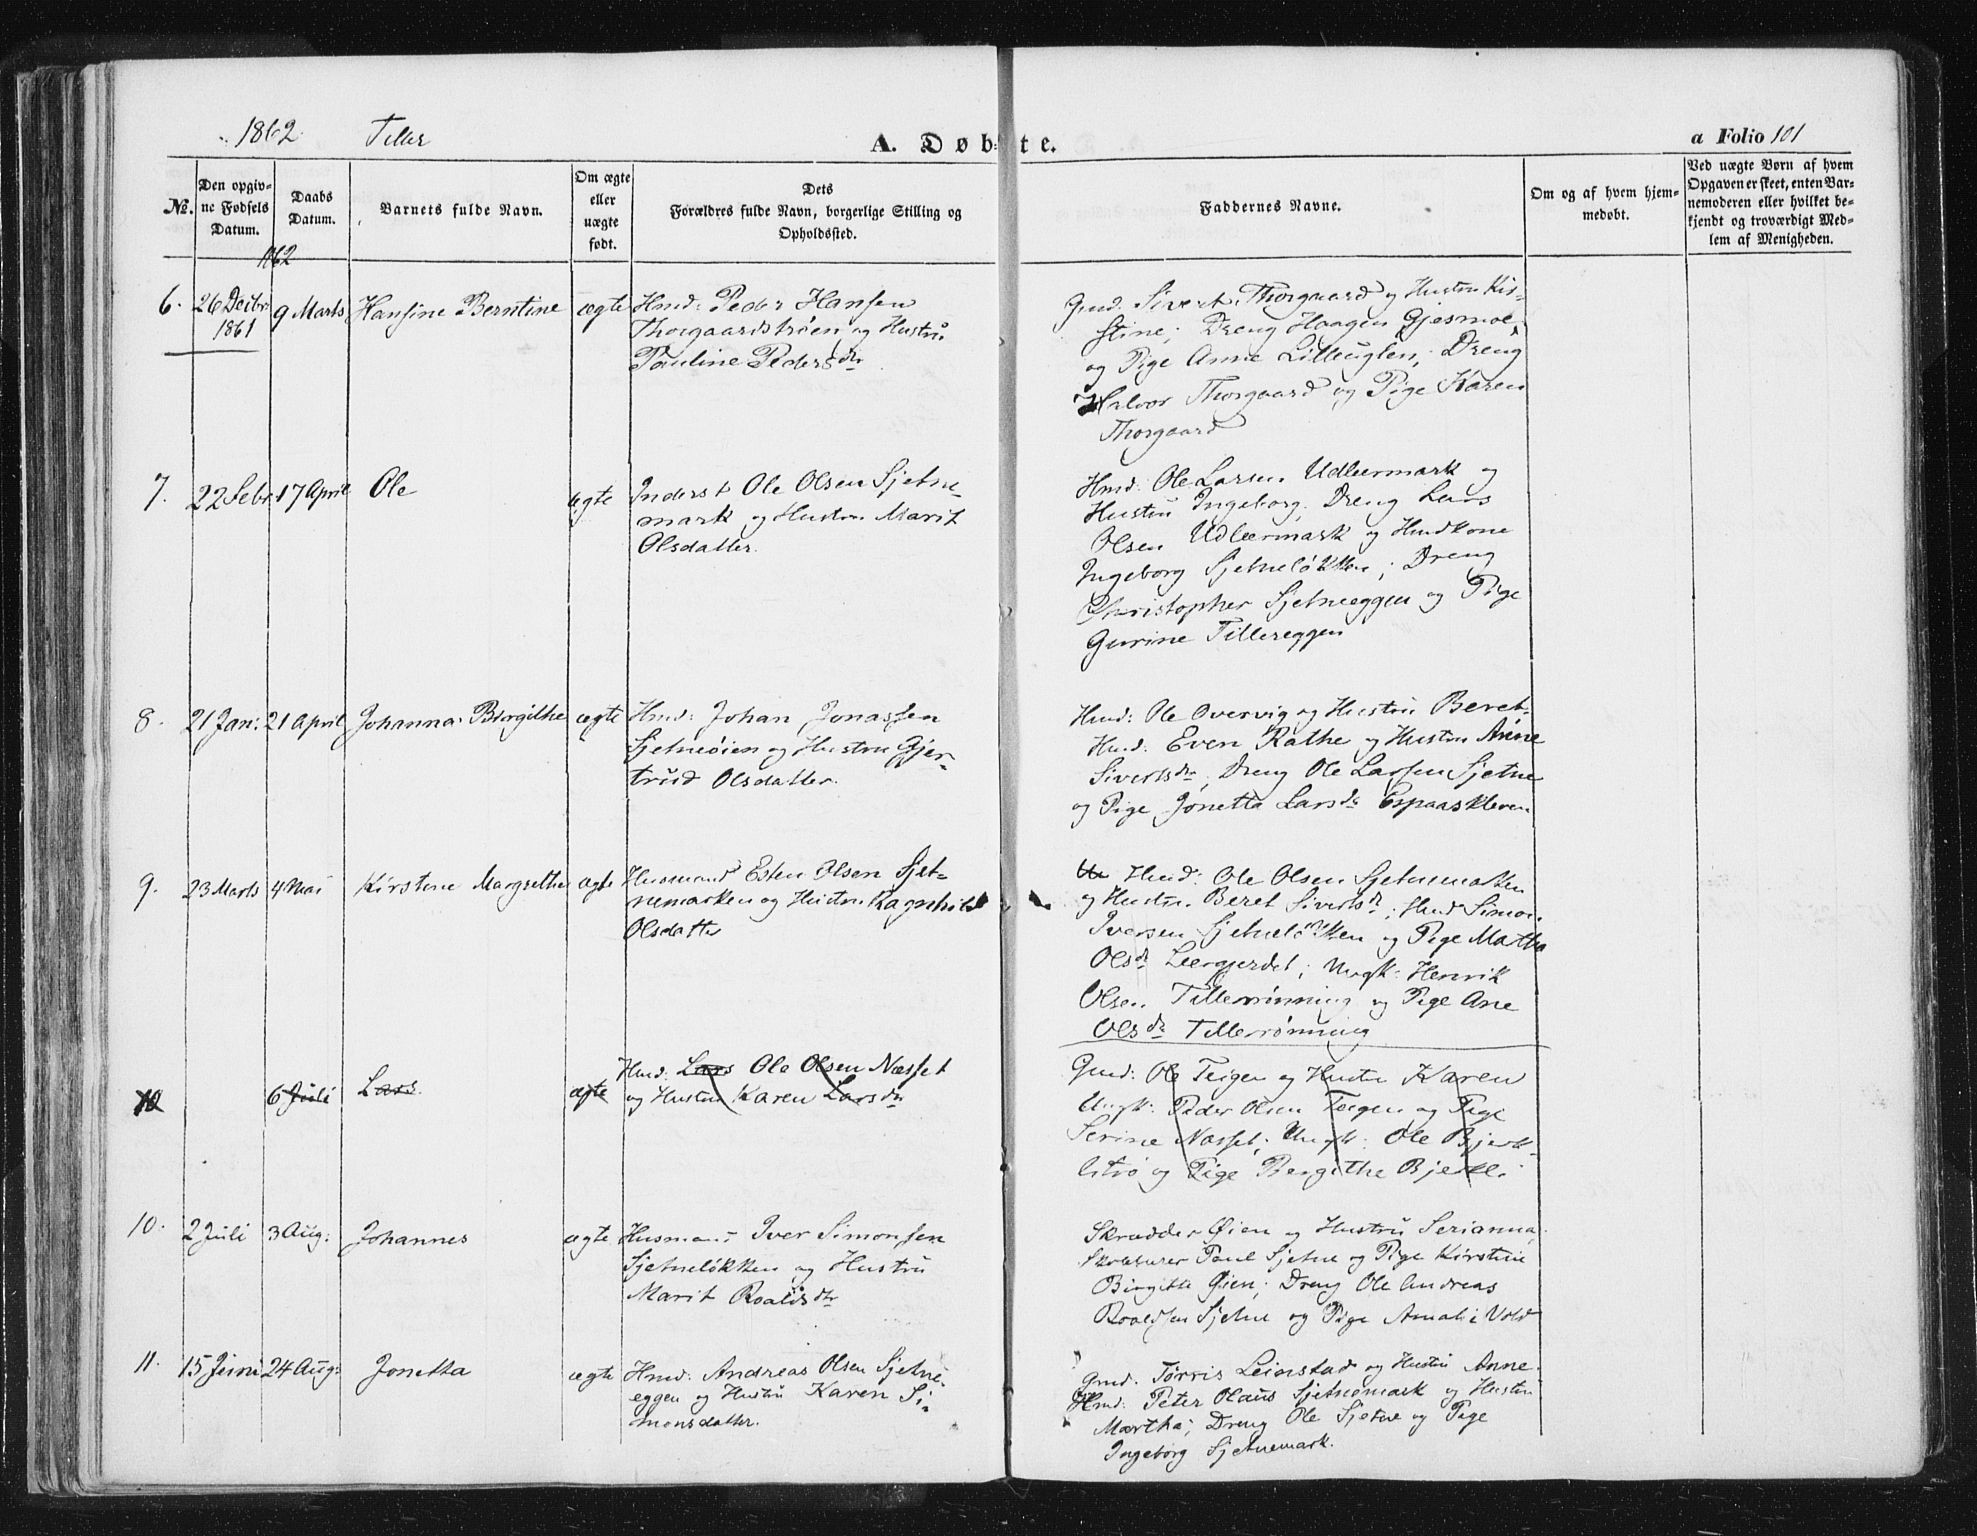 1862 Tiller
A. Døbte.
a Folio 101
No.
Den opgivne Fødsels Datum.
Daabs Datum.
Barnets fulde Navn.
Om ægte eller uægte født.
Dets Forældres fulde Navn, borgerlige Stilling og Opholdssted.
Faddernes Navne.
Om og af hvem hjemmedøbt.
Ved uægte Børn af hvem Opgaven er skeet, enten Barnemoderen eller hvilket bekjendt og troværdigt Medlem af Menigheden.
1862
6. 26 Decibr 1861 9 Marts Hansine Berntine ægte
Hmd: Peder Hansen
Thorgaardstrøen og Hustru
Pauline Pedersdtr
Gmd. Sivert Thorgaard og Hustru Kir-
stine; Dreng Haagen Gjesmoe
og Pige Anne Lilleuglen; Dreng
Halvor Thorgaard og Pige Karen
Thorgaard
7. 22 Febr. 17 April Ole ægte
Inderst Ole Olsen Sjetne-
mark og Hustru Marit
Olsdatter.
Hmd: Ole Larsen Udleermark og
Hustru Ingeborg. Dreng Lars
Olsen Udleermark og Hmdkone
Ingeborg Sjetneløkken; Dreng
Christopher Sjetneeggen og Pige
Gurine Tillereggen
8. 21 Jan: 21 April Johanna Birgithe ægte
Hmd: Johan Jonassen
Sjetneøien og Hustru Gjer-
trud Olsdatter.
Hmd: Ole Overvig og Hustru Beret.
Hmd: Even Rathe og Hustru Anne
Sivertsdr, Dreng Ole Larssen Sjetne
og Pige Jonetta Larsdr Espaaskleven
9. 23 Marts 4 Mai Kirstine Margrethe ægte
Husmand Esten Olsen Sjet-
nemarken og Hustru Ragnhild
Olsdatter
Hmd: Ole Olsen
og Hustru Beret Sivertsdr; Hmd Simon
Iversen Sjetneløkken og Pige Martha
Olsdr Leergjerdet; Ungk: Henrik
Olsen Tillerrønning og Pige Ane
Olsdr Tillerrønning
10 6 Juli Lars ægte
Hmd: Lars Ole Olsen Næsset
og Hustru Karen Larsdr
Gmd: Ole Teigen og Hustru Karen
Ungk: Peder Olsen Teigen og Pige
Serine Næsset; Ungk: Ole Bjerk-
litrø og Pige Bergithe Bjerkli
10. 2 Juli 3 Aug: Johannes ægte
Husmand Iver Simonsen
Sjetneløkken og Hustru
Marit Roaldsdtr
Skrædder Øien og Hustru Serianna,
Skolelærer Paul Sjetne og Pige Kirstine
Birgitte Øien; Dreng Ole Andreas
Roaldsen Sjetne og Pige Amalie Vold
11. 15 Juni 24 Aug: Jonetta ægte
Hmd: Andreas Olsen Sjetne-
eggen og Hustru Karen Si-
monsdatter.
Gmd. Tørris Leinstad og Hustru Anne.
Hmd: Peter Olaus Sjetnemark og Hustru
Martha; Dreng Ole Sjetne og Pige
Ingeborg Sjetnemark.